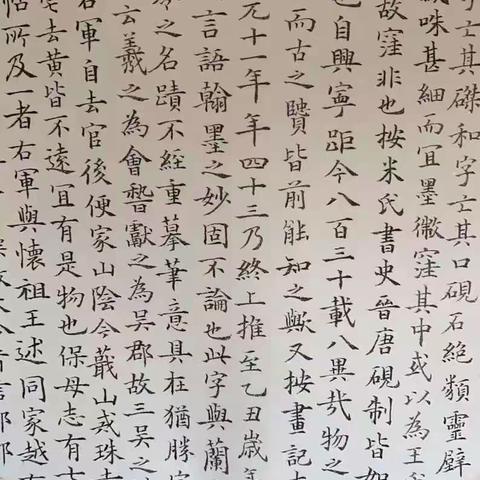 亡其磔和字亡其口硯石絶類靈壁
咮甚細而宜墨微窪其中或以為王
故窪非也按米氏書史晉唐硯制皆如
也自興寧距今八百三十載八異哉物之
而古之賢皆前能知之歟又按畫記
元十一年年四十三乃終上推至乙丑歲年
言語翰墨之妙固不論也此字與蘭
之名蹟不經重摹筆意具在猶勝
云羲之為會稽獻之為吳郡故三吳之
軍自去官後便家山陰今蕺山戒珠
去黄皆不遠宜有是物也保母志有
所及一者右軍與懷祖王述同家越